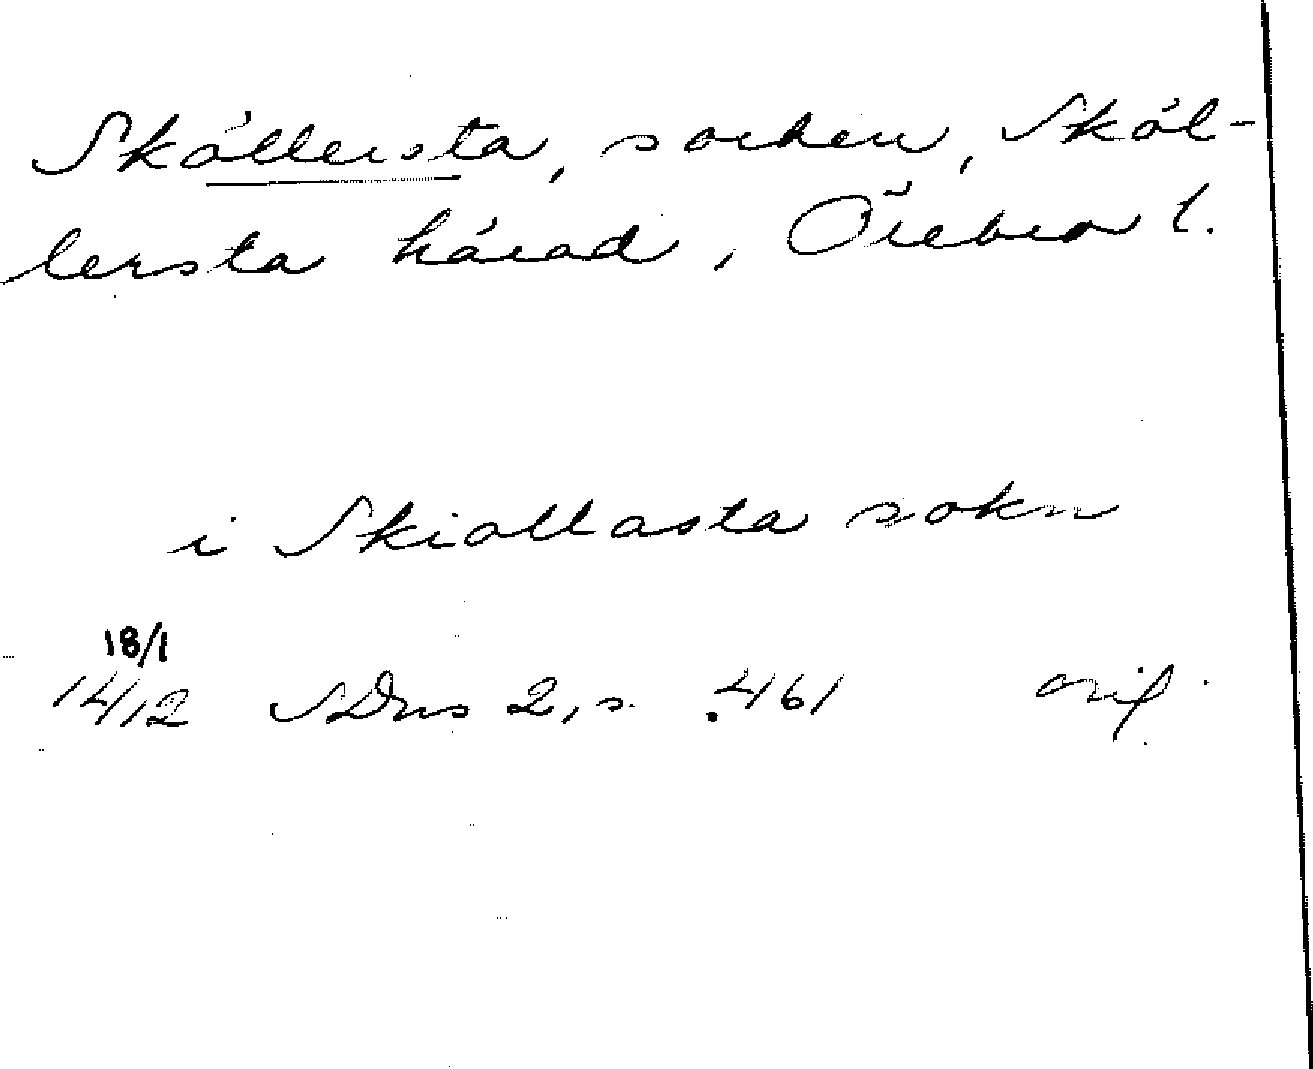 Sköllersta, socken, Sköl-
lersta härad, Örebro l.
i Skiallasta sokn
18/1
1412 SDns 2, s. 461 orig.